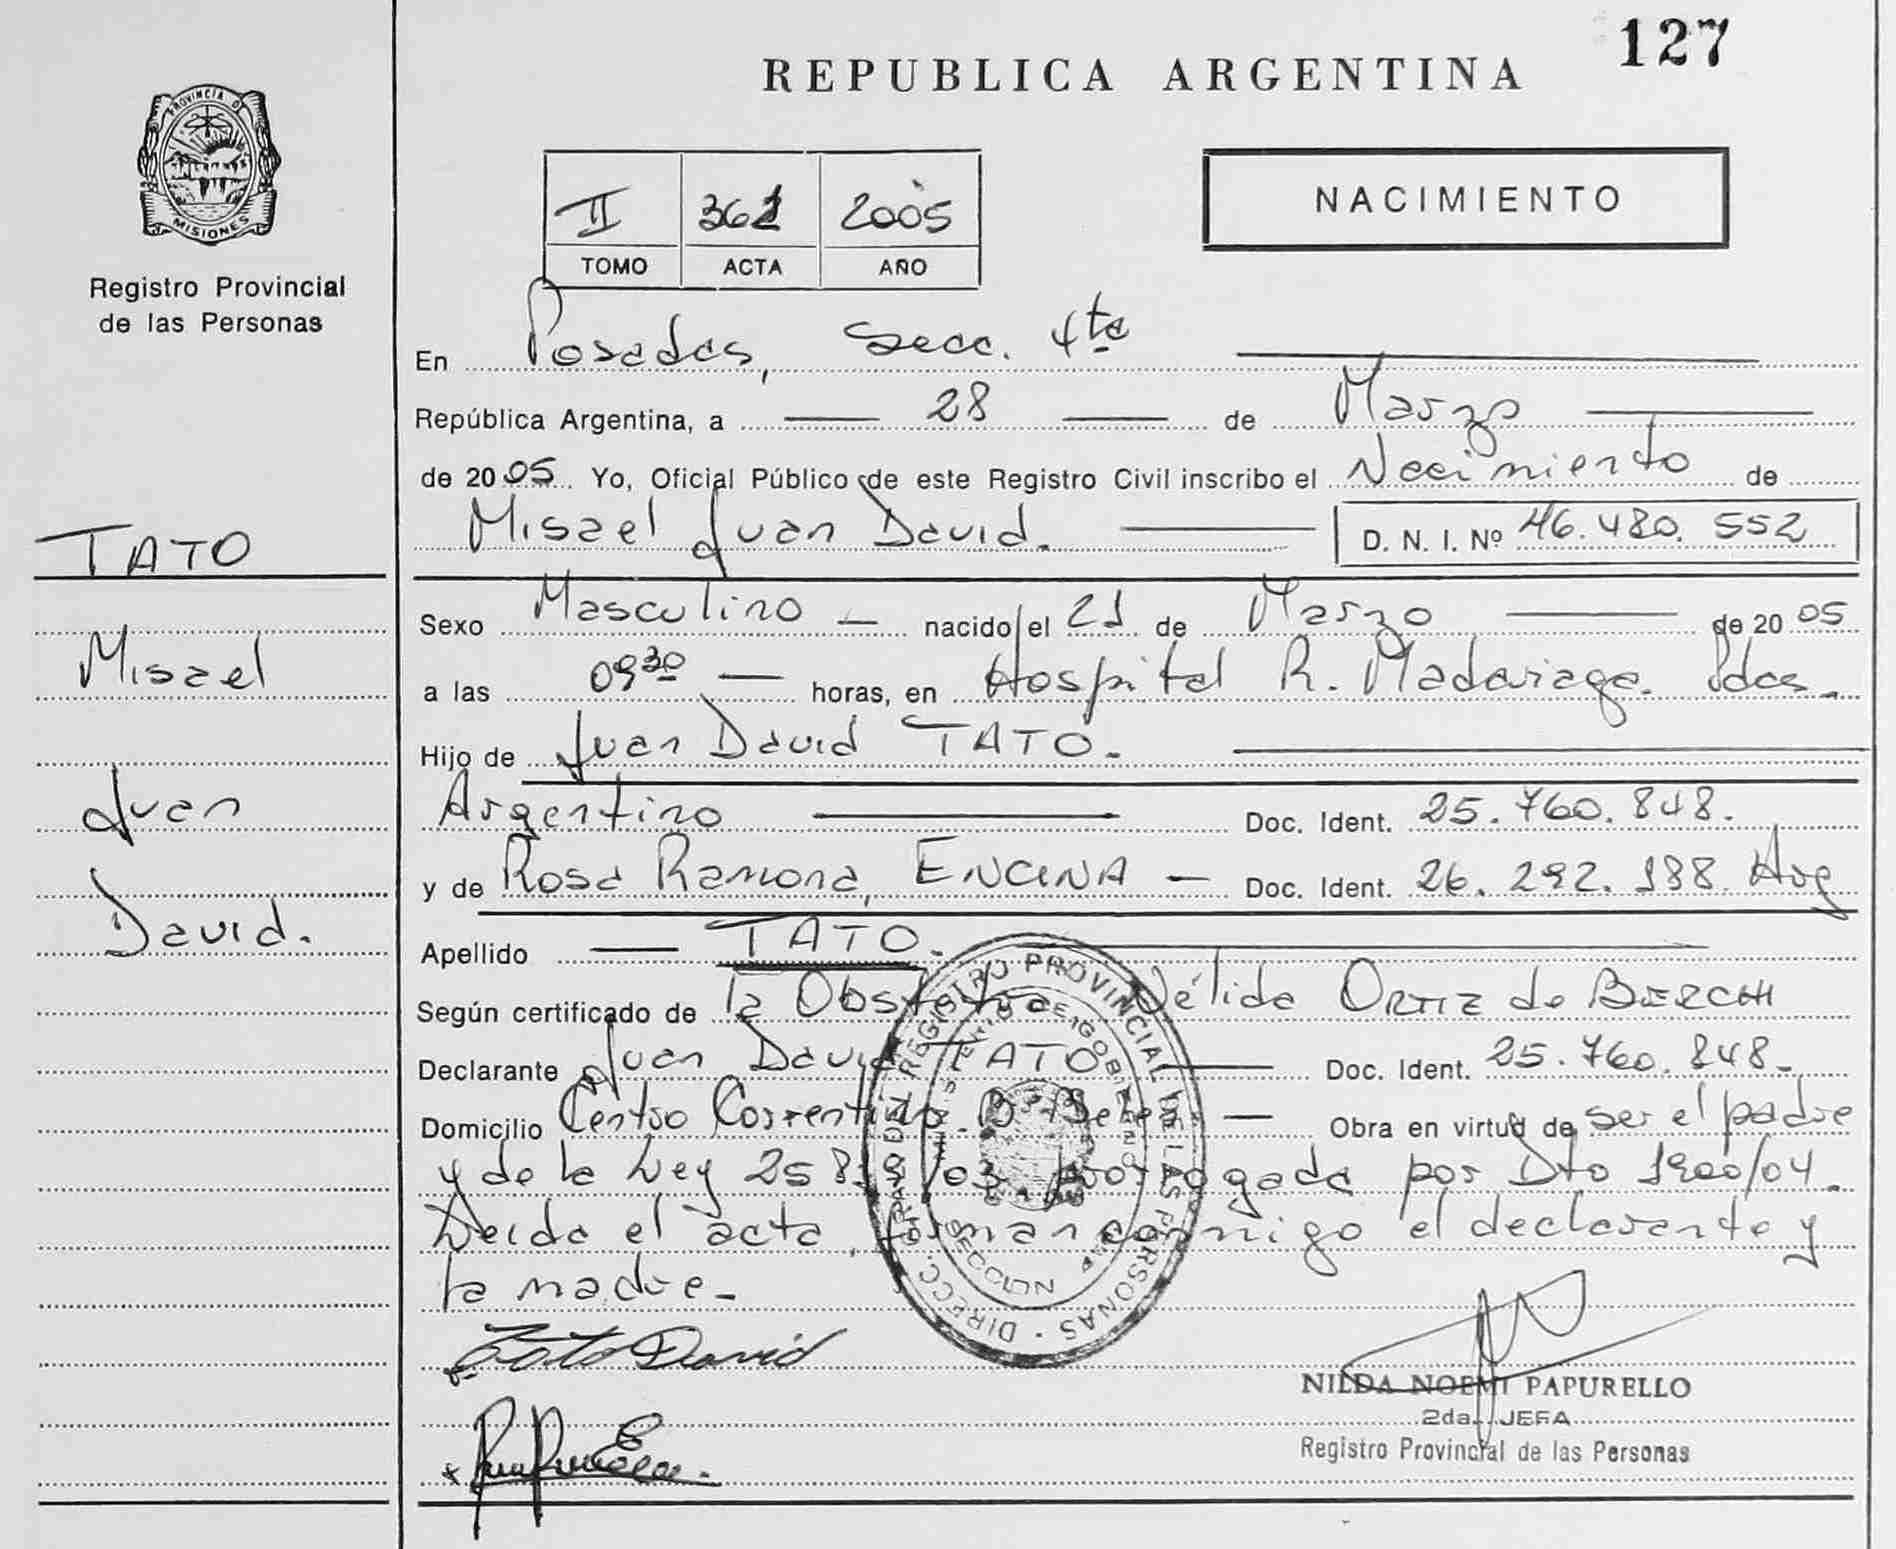 127
REPUBLICA ARGENTINA
PROVINCIA DE
MISIONES
Registro Provincial
de las Personas
NACIMIENTO
II 361 2005
TOMO ACTA AÑO
En Posadas, Secc. 4ta
República Argentina, a 28 de Marzo
de 2005 Yo, Oficial Público de este Registro Civil inscribo el Nacimiento de
Misael Juan David. D. N. I. Nº 46.480.552
TATO
Misael
Juan
David.
Sexo Masculino nacido el 21 de Marzo de 2005
a las 0930 horas, en Hospital R. Madariaga. Pdas.
Hijo de Juan David TATO.
Argentino Doc. Ident. 25.760.848.
y de Rosa Ramona, ENCINA Doc. Ident. 26.292.188. Arg
Apellido TATO.
Según certificado de la Obstetra Nélida ORTIZ de BERCHI
Declarante Juan David TATO Doc. Ident. 25.760.848.
Domicilio Centro Correntino. Bº Belén Obra en virtud de ser el padre
y de la Ley /03 prorrogada por Dto 1900/04.
Leida el acta, forman conmigo el declarante y
la madre.
REGISTRO PROVINCIAL DE LAS PERSONAS · DIRECC.
MINISTERIO DE GOBIERNO
SECCION
Tato David
NILDA NOEMI PAPURELLO
2da. JEFA
Registro Provincial de las Personas